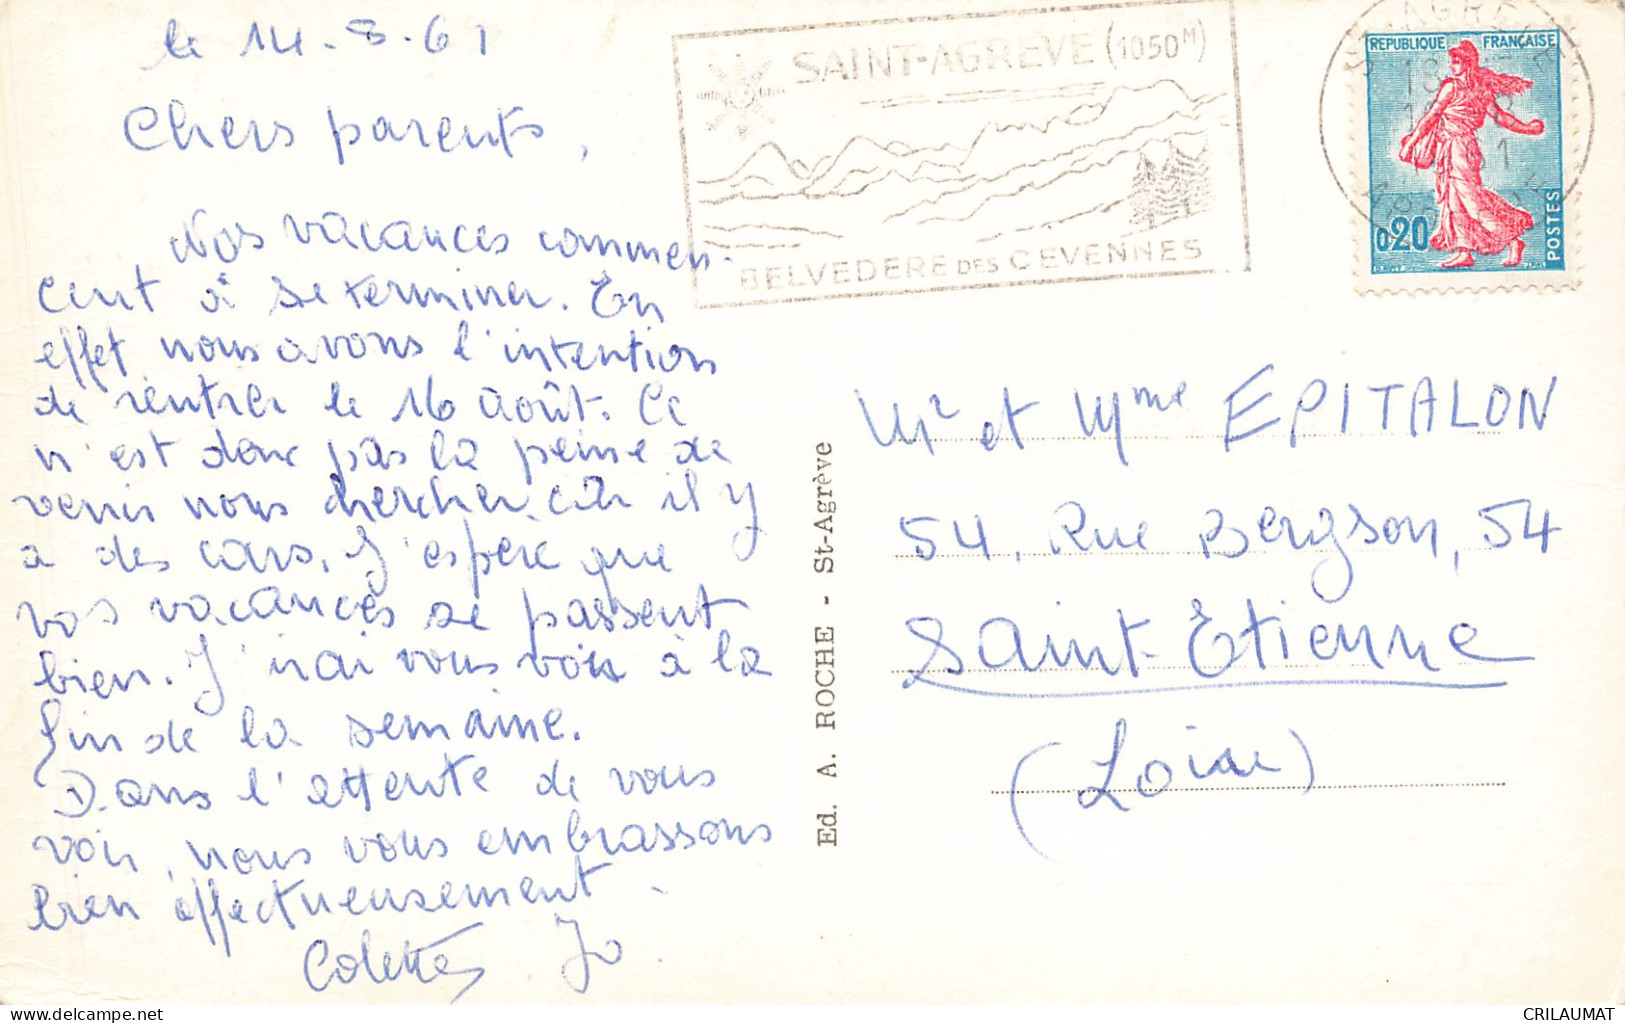 le 14-8-61
Chers parents,
Nos vacances commen-
cent à se terminer. En
effet nous avons l'intention
de rentrer le 16 août. Ce
n'est donc pas la peine de
venir nous chercher car il y
a des cars. J'espère que
vos vacances se passent
bien. J'irai vous voir à la
fin de la semaine.
Dans l'attente de vous
voir, nous vous embrassons
bien affectueusement.
Colette Jo
SAINT-AGREVE (1050M)
BELVEDERE DES CEVENNES
REPUBLIQUE FRANÇAISE
0,20
POSTES
Ed. A. ROCHE - St-Agrève
Mr et Mme EPITALON
54, Rue Bergson, 54
Saint-Etienne
(Loire)
CRILAUMAT